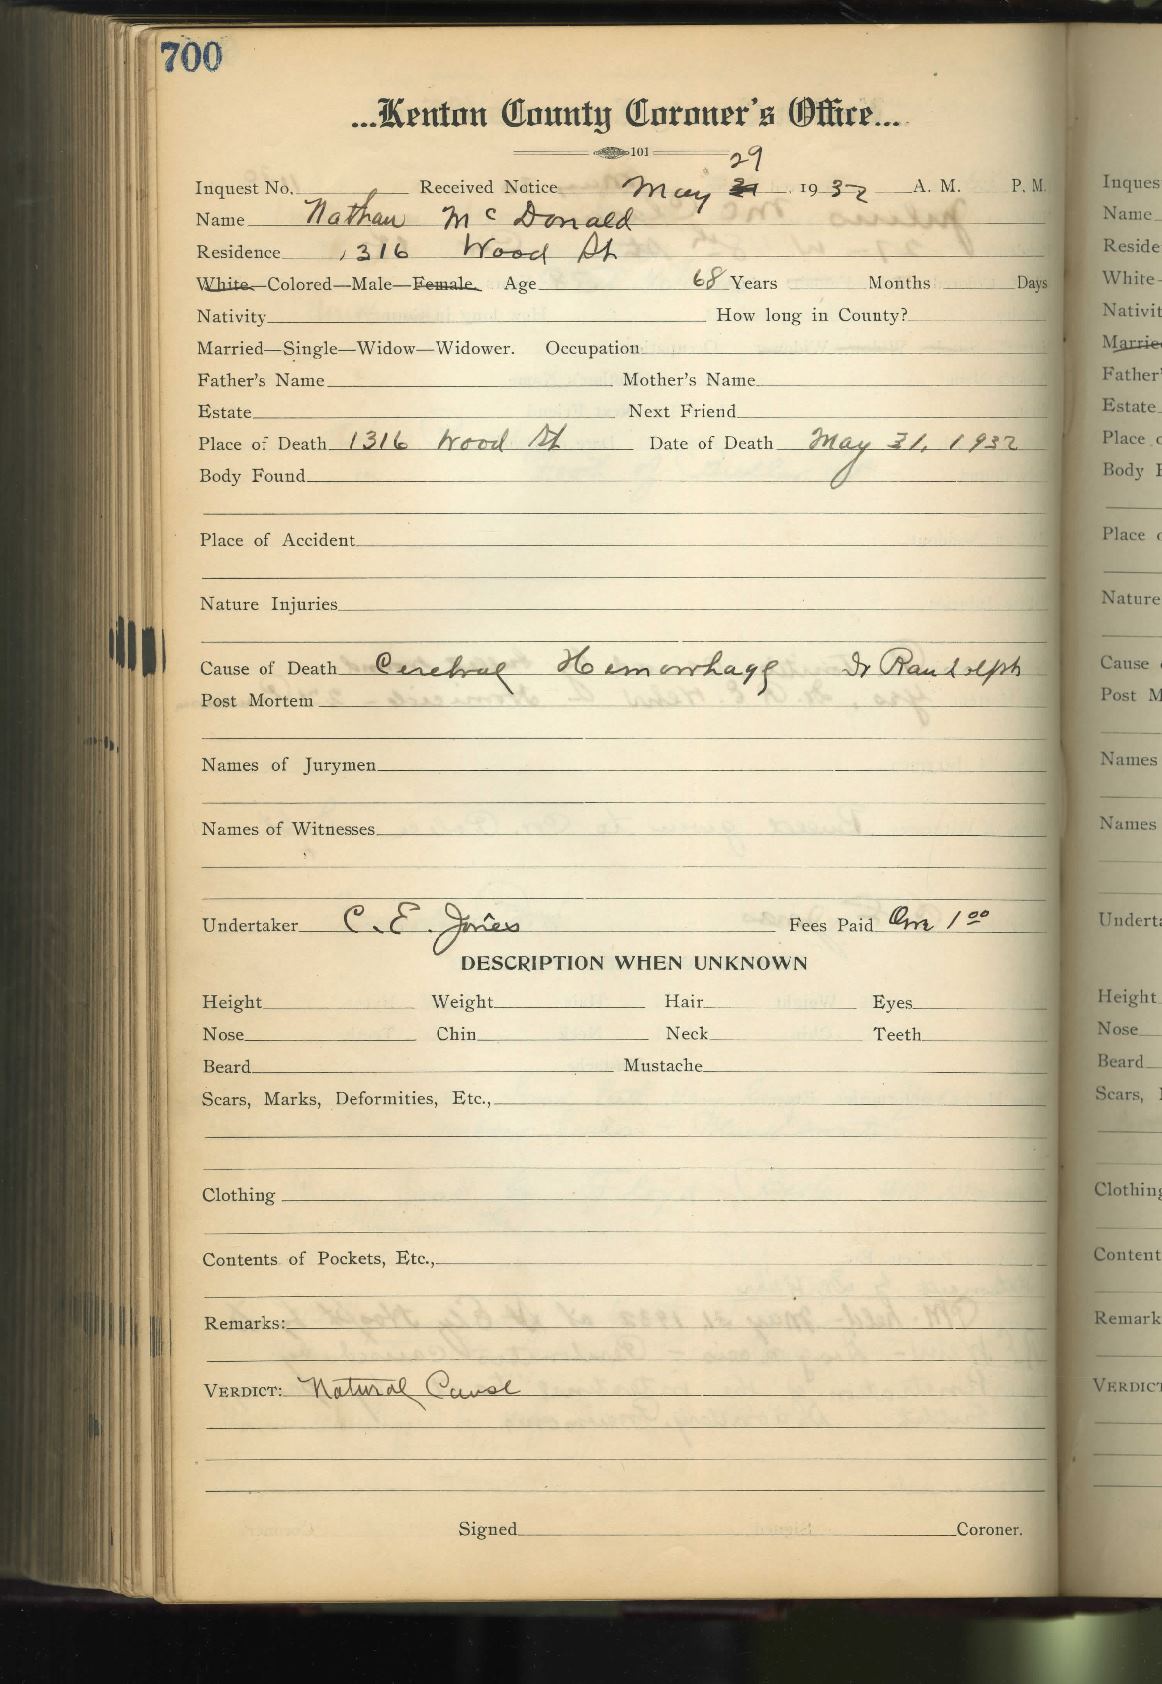 700
...Kenton County Coroner's Office...
101
29
Inquest No. Received Notice May 31 1932 A. M. P. M.
Name Nathan McDonald
Residence 1316 Wood St
White—Colored—Male—Female. Age 68 Years Months Days
Nativity How long in County?
Married—Single—Widow—Widower. Occupation
Father's Name Mother's Name
Estate Next Friend
Place of Death 1316 Wood St Date of Death May 31, 1932
Body Found
Place of Accident
Nature Injuries
Cause of Death Cerebral Hemorrhage Dr Randolph
Post Mortem
Names of Jurymen
Names of Witnesses
Undertaker C. E. Jones Fees Paid 1 00
DESCRIPTION WHEN UNKNOWN
Height Weight Hair Eyes
Nose Chin Neck Teeth
Beard Mustache
Scars, Marks, Deformities, Etc.,
Clothing
Contents of Pockets, Etc.,
Remarks:
VERDICT: Natural Cause
Signed Coroner.
Inques
Name
Reside
White-
Nativit
Marrie
Father'
Estate
Place o
Body F
Place o
Nature
Cause
Post M
Names
Names
Underta
Height
Nose
Beard
Scars,
Clothing
Content
Remark
VERDICT